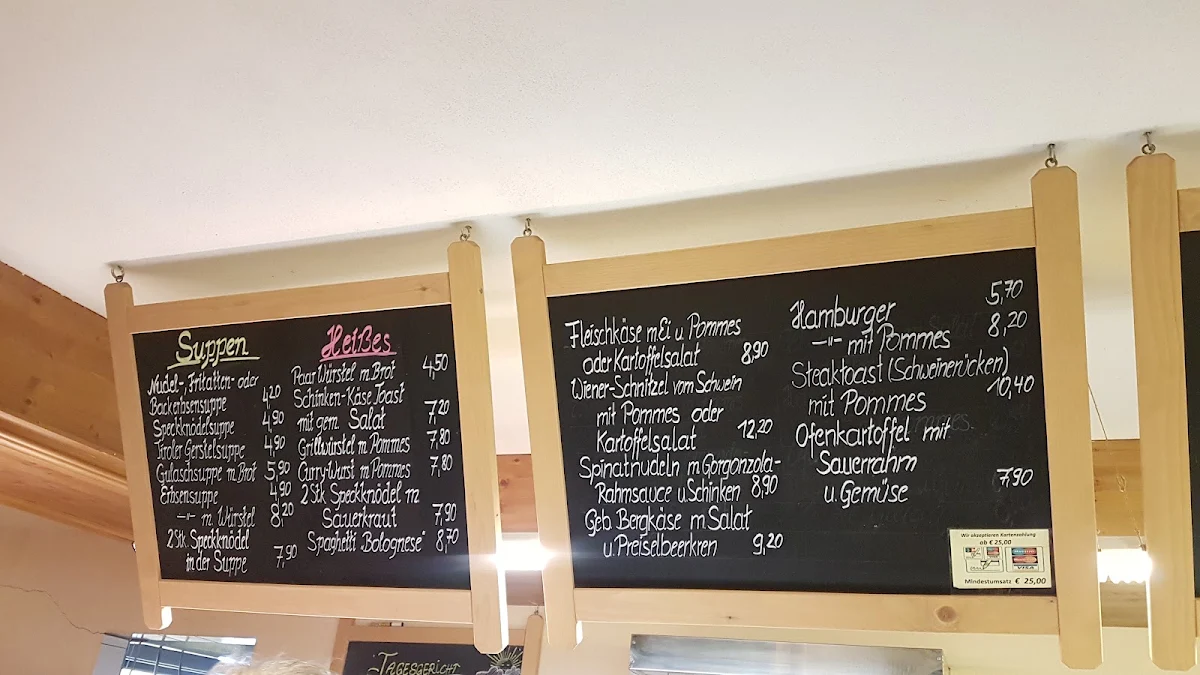 Suppen
Nudel-, Fritatten- oder
Backerbsensuppe 4,20
Speckknödelsuppe 4,90
Tiroler Gerstelsuppe 4,90
Gulaschsuppe m. Brot 5,90
Erbsensuppe 4,90
-"- m. Würstel 8,20
2 Stk. Speckknödel
in der Suppe 7,90
Heißes
Paar Würstel m. Brot 4,50
Schinken-Käse Toast
mit gem. Salat 7,20
Grillwürstel m. Pommes 7,80
Currywurst m. Pommes 7,80
2 Stk Speckknödel m
Sauerkraut 7,90
Spaghetti „Bolognese" 8,70
Fleischkäse m Ei u Pommes
oder Kartoffelsalat 8,90
Wiener-Schnitzel vom Schwein
mit Pommes oder
Kartoffelsalat 12,20
Spinatnudeln m Gorgonzola-
Rahmsauce u Schinken 8,90
Geb Bergkäse m Salat
u. Preiselbeerkren 9,20
Hamburger 5,70
-"- mit Pommes 8,20
Steaktoast (Schweinerücken)
mit Pommes 10,40
Ofenkartoffel mit
Sauerrahm
u. Gemüse 7,90
Wir akzeptieren Kartenzahlung
ab € 25,00
VISA
Mindestumsatz € 25,00
TAGESGERICHT